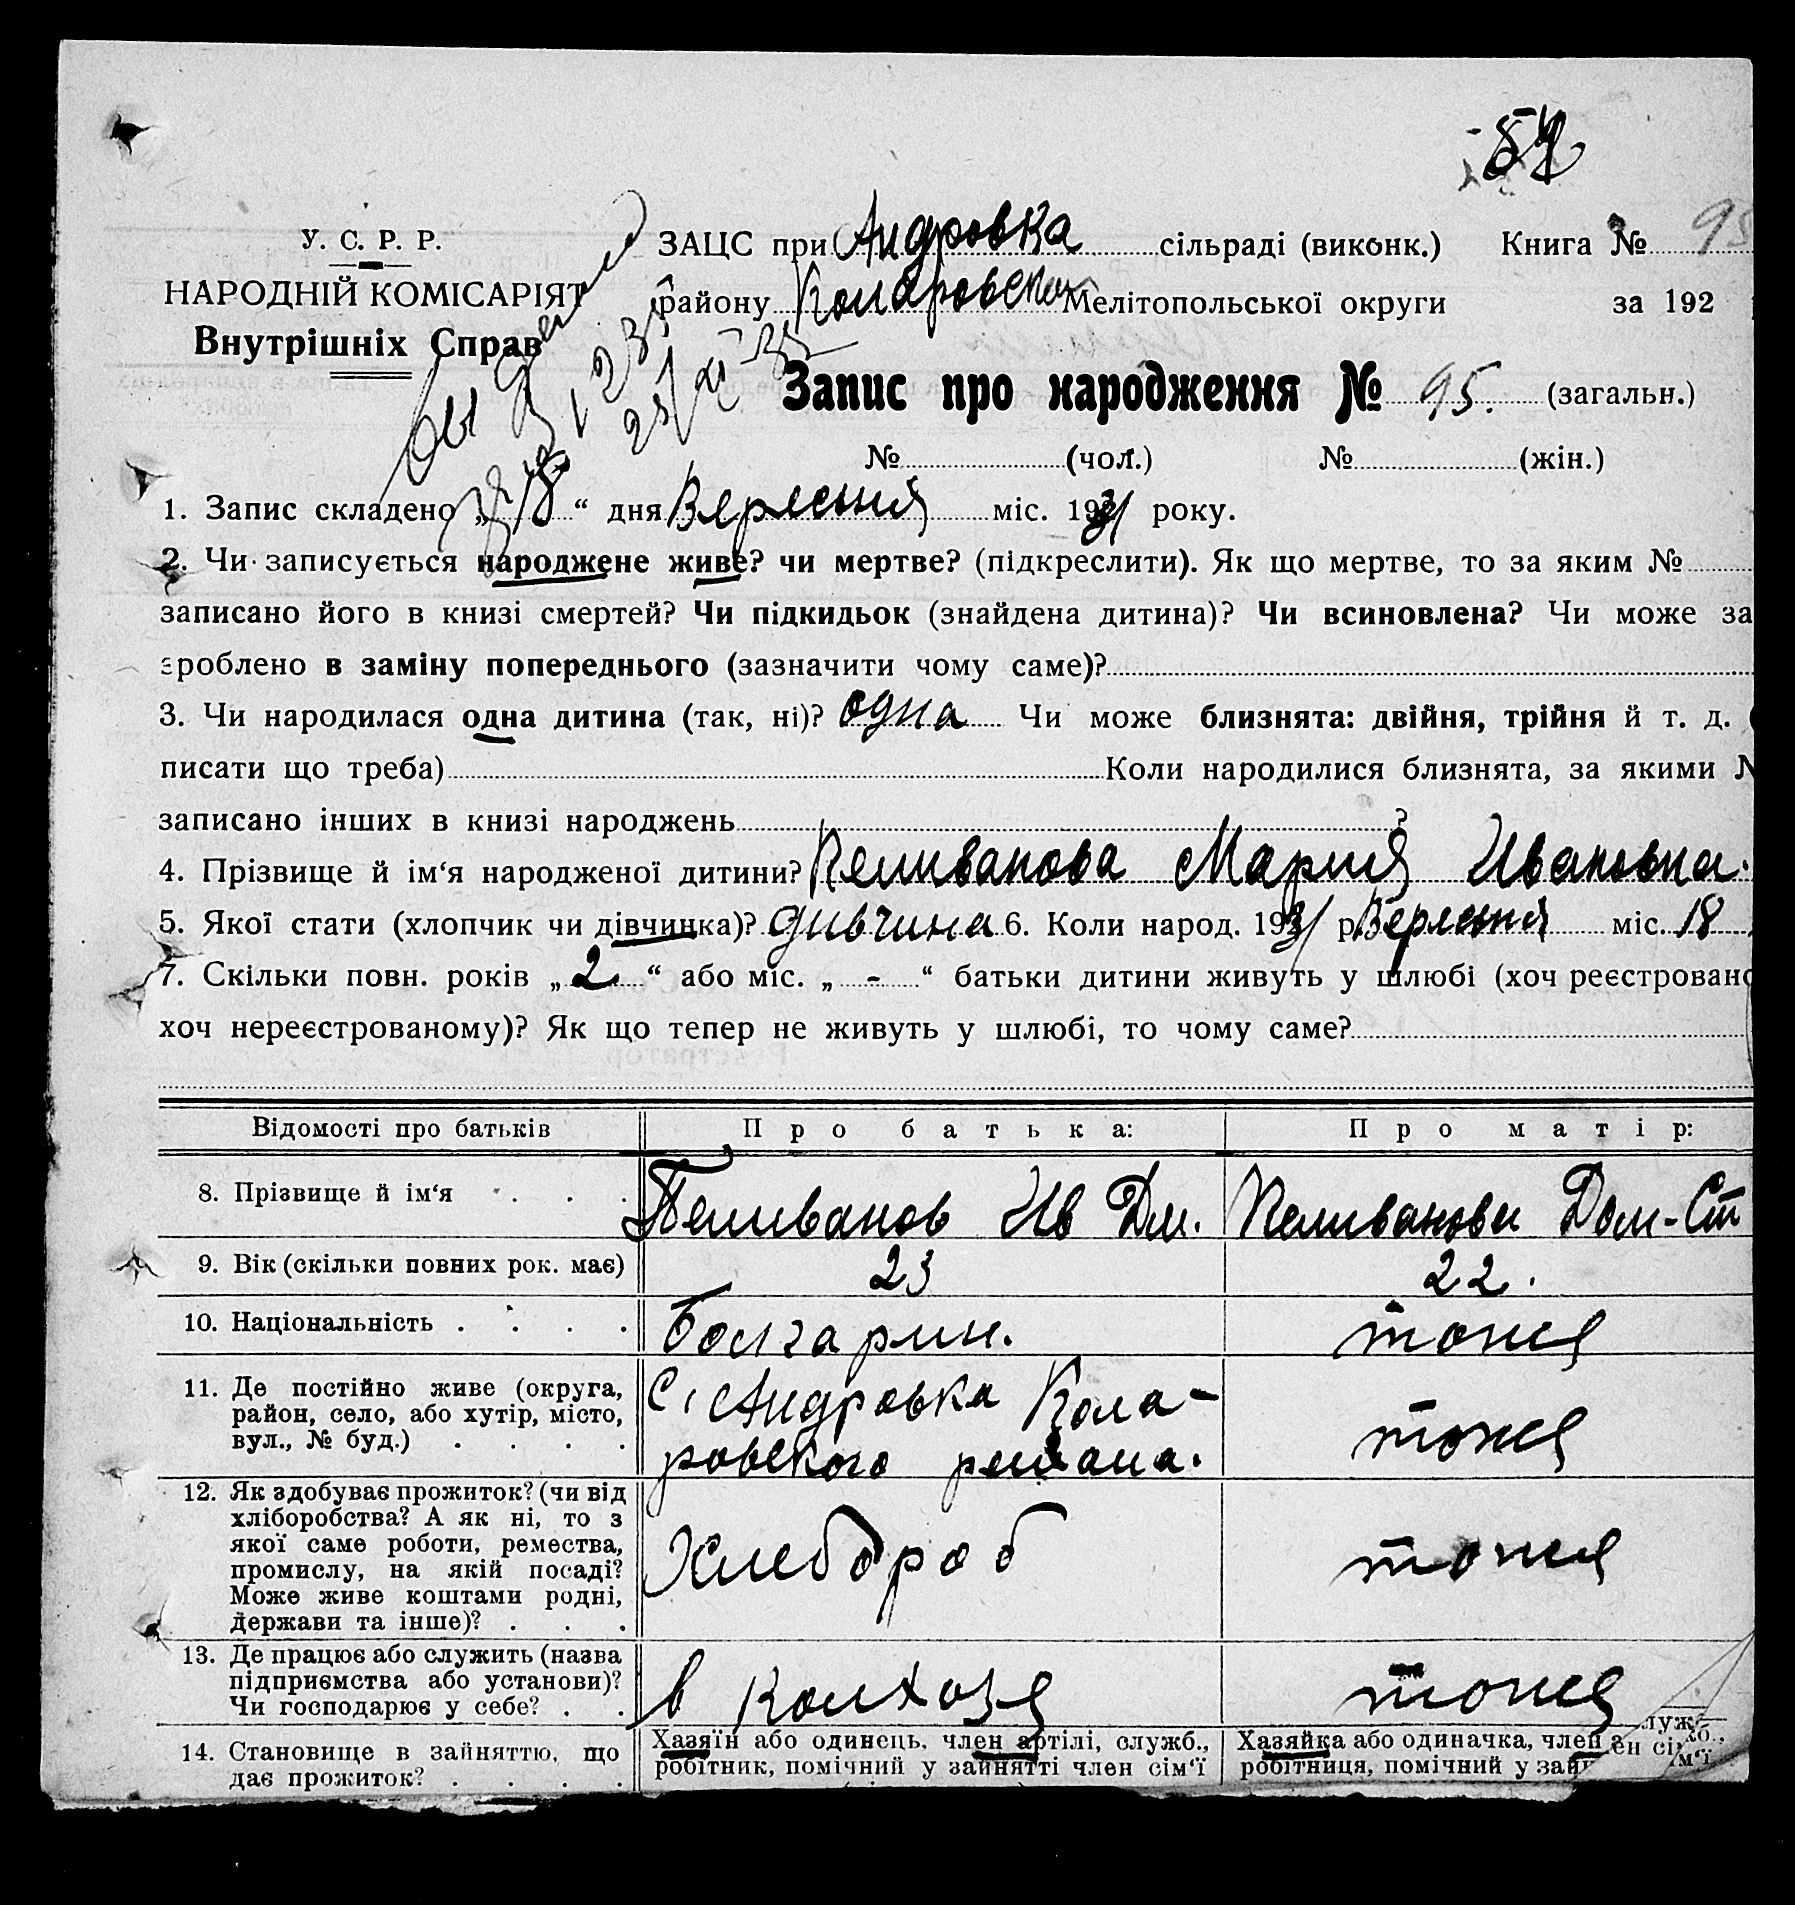 У. С. Р. Р.
НАРОДНІЙ КОМІСАРІЯТ
Внутрішніх Справ
ЗАЦС при Андровка сільраді (виконк.) Книга № 95
району Коларовском Мелітопольської округи за 192
Запис про народження № 95. (загальн.)
№ (чол.) № (жін.)
1. Запис складено „ 18 “ дня Вересня міс. 1931 року.
2. Чи записується народжене живе? чи мертве? (підкреслити). Як що мертве, то за яким №
записано його в книзі смертей? Чи підкидьок (знайдена дитина)? Чи всиновлена? Чи може за
зроблено в заміну попереднього (зазначити чому саме)?
3. Чи народилася одна дитина (так, ні)? одна Чи може близнята: двійня, трійня й т. д. (
писати що треба) Коли народилися близнята, за якими №
записано інших в книзі народжень ?
4. Прізвище й ім‘я народженої дитини? Пеливанова Мария Ивановна.
5. Якої стати (хлопчик чи дівчинка)? дивчина 6. Коли народ. 1931 р. Вересня міс. 18
7. Скільки повн. років „ 2 “ або міс. „ - “ батьки дитини живуть у шлюбі (хоч реєстровано
хоч нереєстрованому)? Як що тепер не живуть у шлюбі, то чому саме?
Відомості про батьків Про батька: Про матір:
8. Прізвище й ім‘я . . . Пеливанов Ив Дм. Пеливанова Дом-Ст
9. Вік (скільки повних рок. має) 23 22.
10. Національність . . . . Болгарин. тоже
11. Де постійно живе (округа, район, село, або хутір, місто, вул., № буд.) . . . .
С. Андровка Кола-
ровского района.
тоже
12. Як здобуває прожиток? (чи від
хліборобства? А як ні, то з
якої саме роботи, ремества,
промислу, на якій посаді?
Може живе коштами родні,
держави та інше)? . . .
Хлебороб тоже
13. Де працює або служить (назва
підприємства або установи)?
Чи господарює у себе? . .
в колхозе тоже
14. Становище в зайняттю, що
дає прожиток? . . . .
Хазяїн або одинець, член артілі, служб.,
робітник, помічний у зайнятті член сім‘ї
Хазяйка або одиначка, член
робітниця, помічний у зай